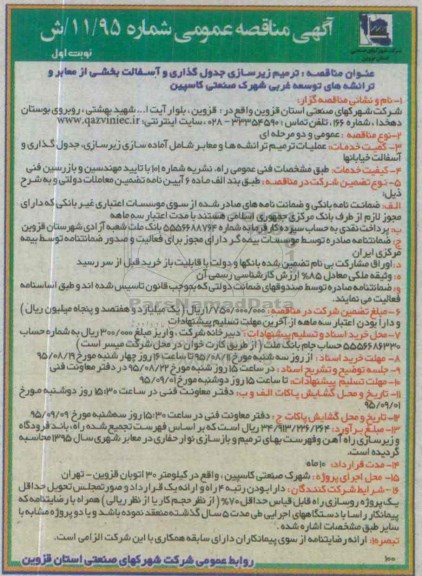 آگهی مناقصه عمومی شماره ۱۱/۹۵/ش
نوبت اول
عنوان مناقصه : ترمیم زیرسازی جدول گذاری و آسفالت بخشی از معابر و
ترانشه های توسعه غربی شهرک صنعتی کاسپین
۱-نام و نشانی مناقصه گزار:
شرکت شهرکهای صنعتی استان قزوین واقع در : قزوین ، بلوار آیت ا... شهید بهشتی ، روبروی بوستان
دهخدا ، شماره ۱۶۶ ، تلفن تماس : ۳۳۳۵۴۵۹۰ - ۰۲۸ ، سایت اینترنتی: www.qazviniec.ir
۲-نوع مناقصه : عمومی و دو مرحله ای
۳- کمیت خدمات: عملیات ترمیم ترانشه ها و معابر شامل آماده سازی زیرسازی، جدول گذاری و
آسفالت خیابانها
۴- کیفیت خدمات: طبق مشخصات فنی عمومی راه، نشریه شماره ۱۰۱ با تایید مهندسین و بازرسین فنی
۵- نوع تضمین شرکت در مناقصه : طبق بند الف ماده ۶ آیین نامه تضمین معاملات دولتی و به شرح
ذیل:
الف: ضمانت نامه بانکی و ضمانت نامه های صادر شده از سوی موسسات اعتباری غیر بانکی که دارای
مجوز لازم از طرف بانک مرکزی جمهوری اسلامی هستند با مدت اعتبار سه ماهه
ب: پرداخت نقدی به حساب سپرده کارفرما به شماره ۵۵۵۶۶۸۸۷۶۴ بانک ملت شعبه آزادی شهرستان قزوین
ج: ضمانتنامه صادره توسط موسسات بیمه گر دارای مجوز برای فعالیت و صدور ضمانتنامه توسط بیمه
مرکزی ایران
د: اوراق مشارکت بی نام تضمین شده بانکها و دولت با قابلیت باز خرید قبل از سر رسید
ه: وثیقه ملکی معادل ۸۵% ارزش کارشناسی رسمی آن
و: ضمانتنامه صادره توسط صندوقهای ضمانت دولتی که بموجب قانون تاسیس شده اند و طبق اساسنامه
فعالیت می نمایند.
۶- مبلغ تضمین شرکت در مناقصه : ۱/۷۵۰/۰۰۰/۰۰۰ ریال ( یک میلیارد و هفتصد و پنجاه میلیون ریال )
و دارا بودن اعتبار سه ماهه از آخرین مهلت تسلیم پیشنهادات
۷- محل خرید اسناد و تسلیم پیشنهادات : دبیرخانه شرکت ، واریز مبلغ ۳۰۰/۰۰۰ ریال به شماره حساب
حساب جام بانک ملت ( از طریق کارت خوان در محل شرکت میسر است )
۸- مهلت خرید اسناد : از روز سه شنبه مورخ ۹۵/۰۸/۱۱ تا ساعت ۱۶ روز چهار شنبه مورخ ۹۵/۰۸/۱۹
۹- جلسه توضیح و تشریح اسناد : در ساعت ۱۵ روز شنبه مورخ ۹۵/۰۸/۲۲ در دفتر معاونت فنی
۱۰- مهلت تسلیم پیشنهادات: تا ساعت ۱۵ روز دوشنبه مورخ ۹۵/۰۹/۰۱
۱۱- تاریخ و محل گشایش پاکات الف و ب: دفتر معاونت فنی در ساعت ۱۵:۳۰ روز دوشنبه مورخ
۹۵/۰۹/۰۱
۱۲- تاریخ و محل گشایش پاکات ج : دفتر معاونت فنی در ساعت ۱۵:۳۰ روز سه شنبه مورخ ۹۵/۰۹/۰۹
۱۳- مبلغ برآورد: ۳۴/۹۱۳/۲۳۶/۲۶۴ ریال است که بر اساس فهرست تجمیع شده راه، باند فرودگاه
و زیرسازی راه آهن و فهرست بهای ترمیم و بازسازی نوار حفاری در معابر شهری سال ۱۳۹۵ محاسبه
گردیده است.
۱۴- مدت قرارداد: ۱۰ ماه
۱۵- محل اجرای پروژه : شهرک صنعتی کاسپین ، واقع در کیلومتر ۳۰ اتوبان قزوین - تهران
۱۶- شرایط شرکت کنندگان : دارا بودن رتبه ۴ راه و ارائه یک قرارداد و صورتمجلس تحویل حداقل
یک پروژه روسازی راه قابل قیاس حداقل ۷۰% ( از نظر حجم کار یا از نظر ریالی ) همراه با رضایتنامه که
پیمانکار راسا با دستگاههای اجرایی طی مدت ۵ سال گذشته منعقد نموده باشد و یا دو پروژه مشابه با
سایر طبق مشخصات اشاره شده .
تبصره۱: ارائه رضایتنامه از سوی پیمانکاران دارای سابقه همکاری با این شرکت الزامی است.
روابط عمومی شرکت شهرکهای صنعتی استان قزوین